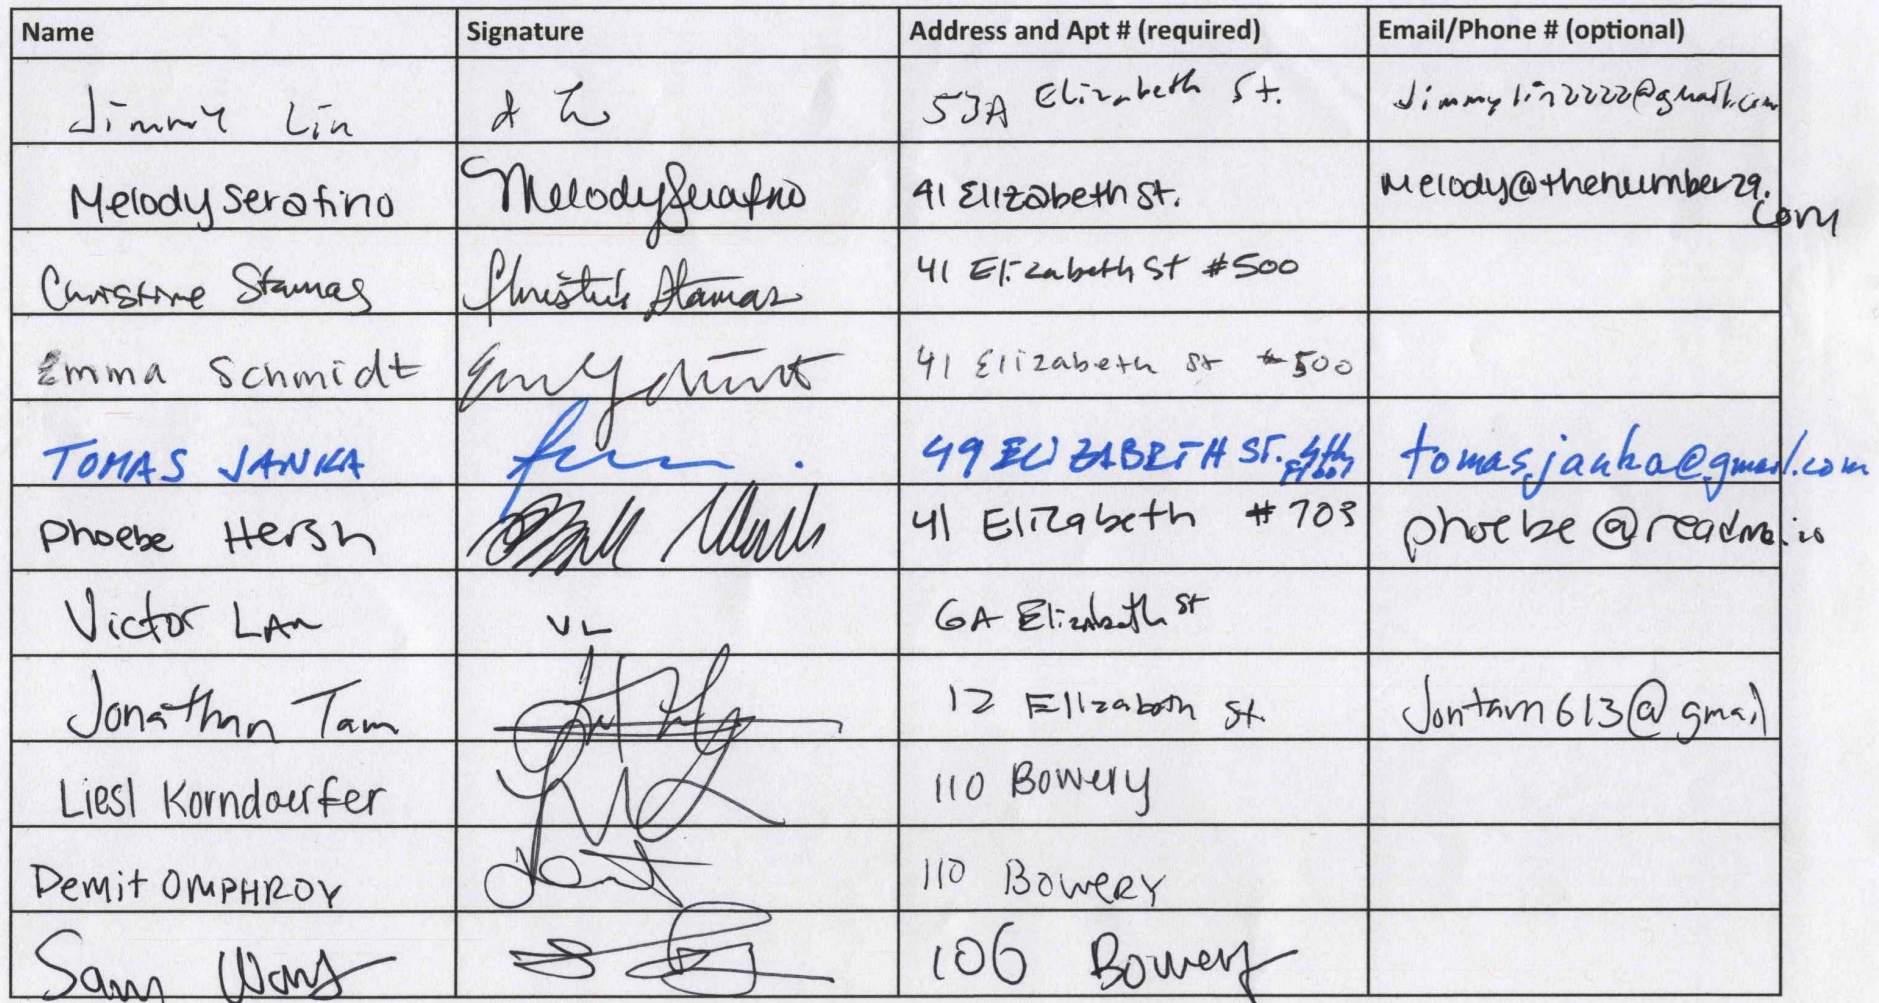 Name Signature Address and Apt # (required) Email/Phone # (optional)
Jimmy Lin 53A Elizabeth St. Jimmylin2222@gmail.com
Melody Serafino Melody Serafino 41 Elizabeth St. Melody@thenumber29.com
Christine Stamas Christine Stamas 41 Elizabeth St #500
Emma Schmidt 41 Elizabeth St #500
TOMAS JANKA 49 ELIZABETH ST. 4th Floor tomas.janka@gmail.com
Phoebe Hersh 41 Elizabeth #703 phoebe@readme.io
Victor LAn VL 6A Elizabeth St
Jonathan Tam 12 Elizabeth St Jontam613@gmail
Liesl Korndoerfer 110 Bowery
Demit OMPHROY 110 BOWERY
Sam Wong 106 Bowery